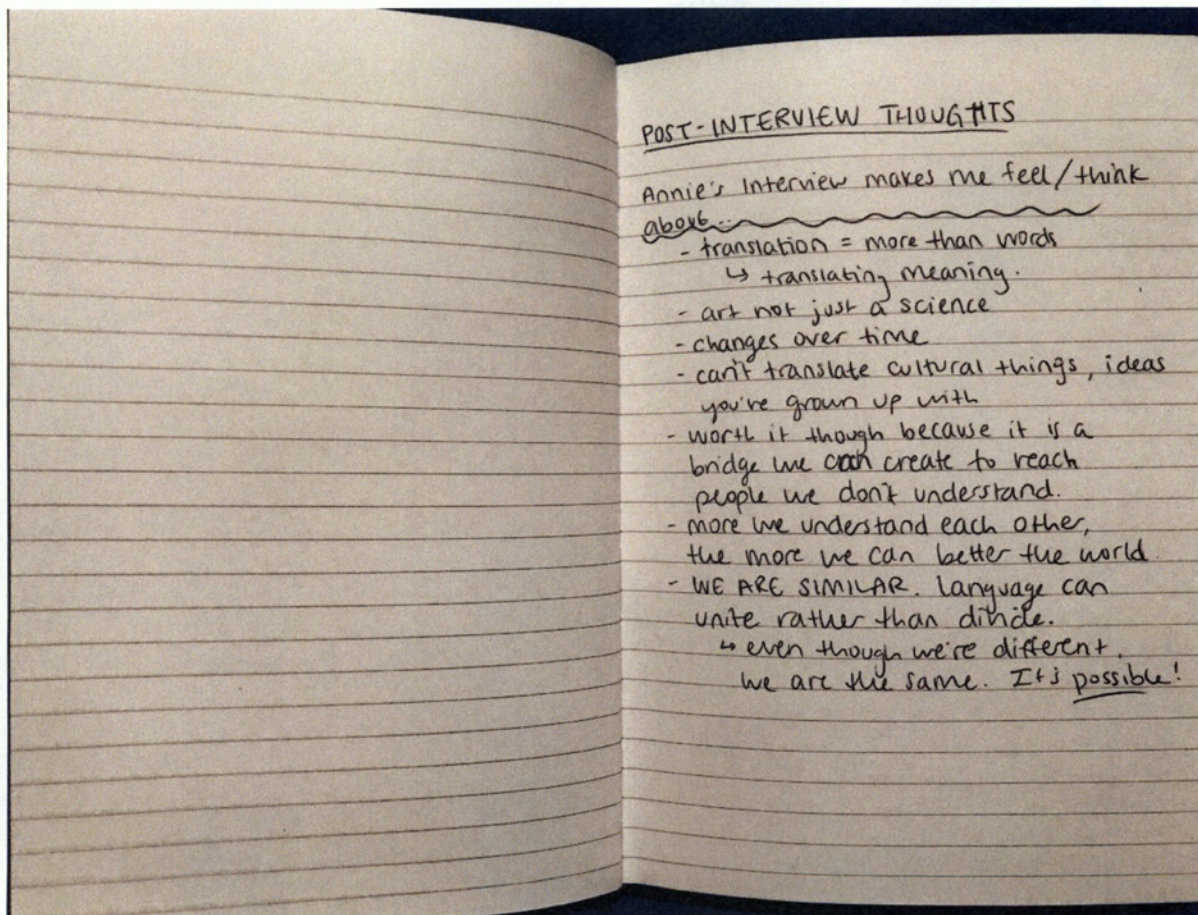 POST-INTERVIEW THOUGHTS
Annie's Interview makes me feel/think
about...
- translation = more than words
↳ translating meaning.
- art not just a science
- changes over time
- can't translate cultural things, ideas
you've grown up with
- worth it though because it is a
bridge we can create to reach
people we don't understand.
- more we understand each other,
the more we can better the world.
- WE ARE SIMILAR. Language can
unite rather than divide.
↳ even though we're different.
we are the same. It's possible!